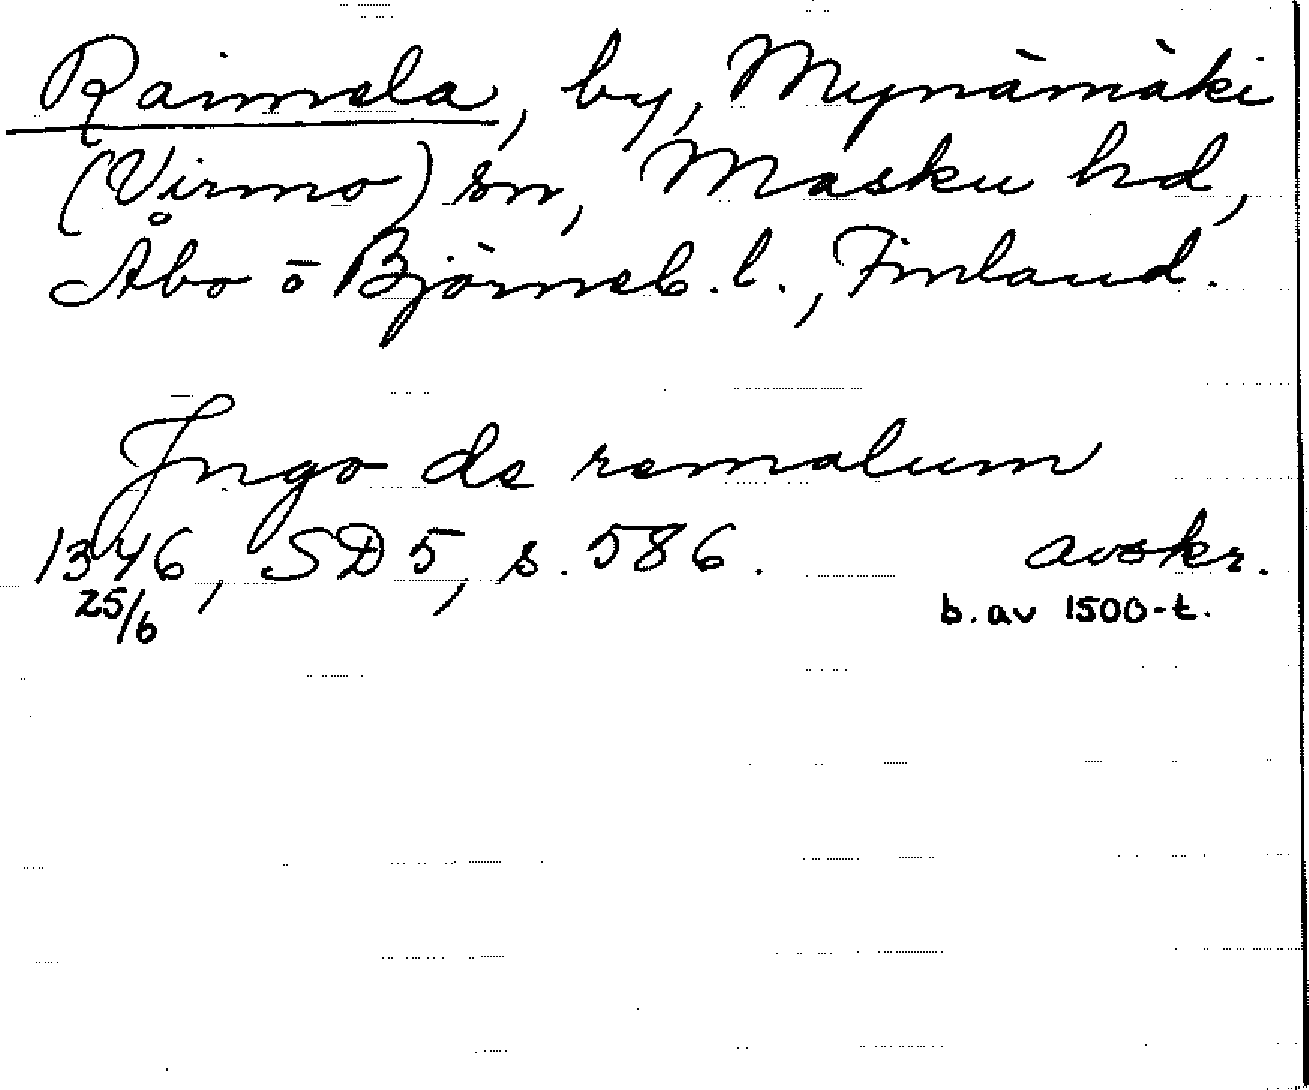 Raimela, by, Mynämäki
(Virmo) sn, Masku hd,
Åbo o Björneb. l., Finland.
Jngo de remalum
1346, SD 5, s. 586. avskr.
25/6 b. av 1500-t.